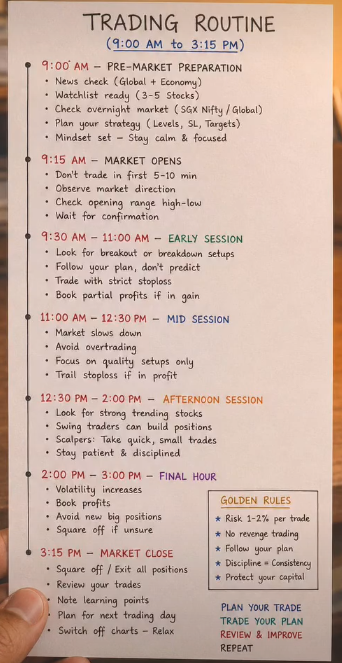 TRADING ROUTINE
(9:00 AM to 3:15 PM)
9:00 AM – PRE-MARKET PREPARATION
• News check (Global + Economy)
• Watchlist ready (3-5 Stocks)
• Check overnight market (SGX Nifty / Global)
• Plan your strategy (Levels, SL, Targets)
• Mindset set – Stay calm & focused
9:15 AM – MARKET OPENS
• Don't trade in first 5-10 min
• Observe market direction
• Check opening range high-low
• Wait for confirmation
9:30 AM – 11:00 AM – EARLY SESSION
• Look for breakout or breakdown setups
• Follow your plan, don't predict
• Trade with strict stoploss
• Book partial profits if in gain
11:00 AM – 12:30 PM – MID SESSION
• Market slows down
• Avoid overtrading
• Focus on quality setups only
• Trail stoploss if in profit
12:30 PM – 2:00 PM – AFTERNOON SESSION
• Look for strong trending stocks
• Swing traders can build positions
• Scalpers: Take quick, small trades
• Stay patient & disciplined
2:00 PM – 3:00 PM – FINAL HOUR
• Volatility increases
• Book profits
• Avoid new big positions
• Square off if unsure
3:15 PM – MARKET CLOSE
• Square off / Exit all positions
• Review your trades
• Note learning points
• Plan for next trading day
• Switch off charts – Relax
GOLDEN RULES
★ Risk 1-2% per trade
★ No revenge trading
★ Follow your plan
★ Discipline = Consistency
★ Protect your capital
PLAN YOUR TRADE
TRADE YOUR PLAN
REVIEW & IMPROVE
REPEAT